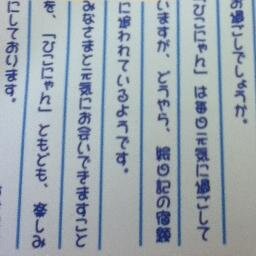 お過ごしでしょうか。
「ひこにゃん」は毎日元気に過ごして
いますが、どうやら、絵日記の宿題
に追われているようです。
みなさまと元気にお会いできますこと
を、「ひこにゃん」ともども、楽しみ
にしております。